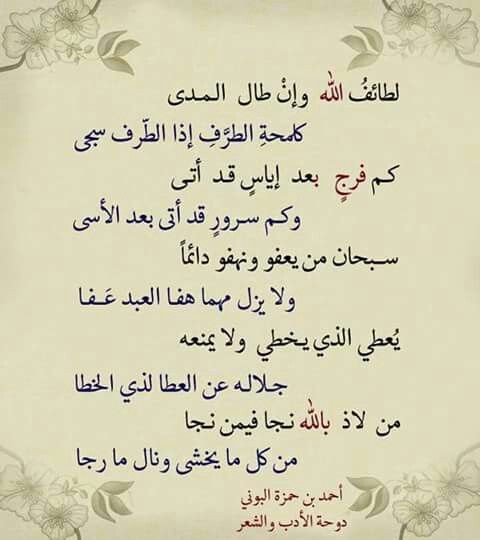 لطائفُ الله وإنْ طال المدى
كلمحةِ الطرَّفِ إذا الطّرف سجى
كم فرجٍ بعد إياسٍ قد أتى
وكم سرورٍ قد أتى بعد الأسى
سبحان من يعفو ونهفو دائماً
ولا يزل مهما هفا العبد عَفا
يُعطي الذي يخطي ولا يمنعه
جلاله عن العطا لذي الخطا
من لاذ بالله نجا فيمن نجا
من كل ما يخشى ونال ما رجا
أحمد بن حمزة البوني
دوحة الأدب والشعر